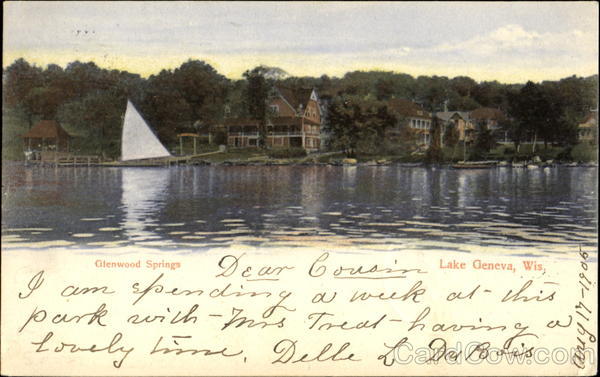 Glenwood Springs
Lake Geneva, Wis.
Dear Cousin
I am spending a week at this
park with - Mrs Treat - having a
lovely time. Delle L DuBois
Aug 17-1905
CardCow.com